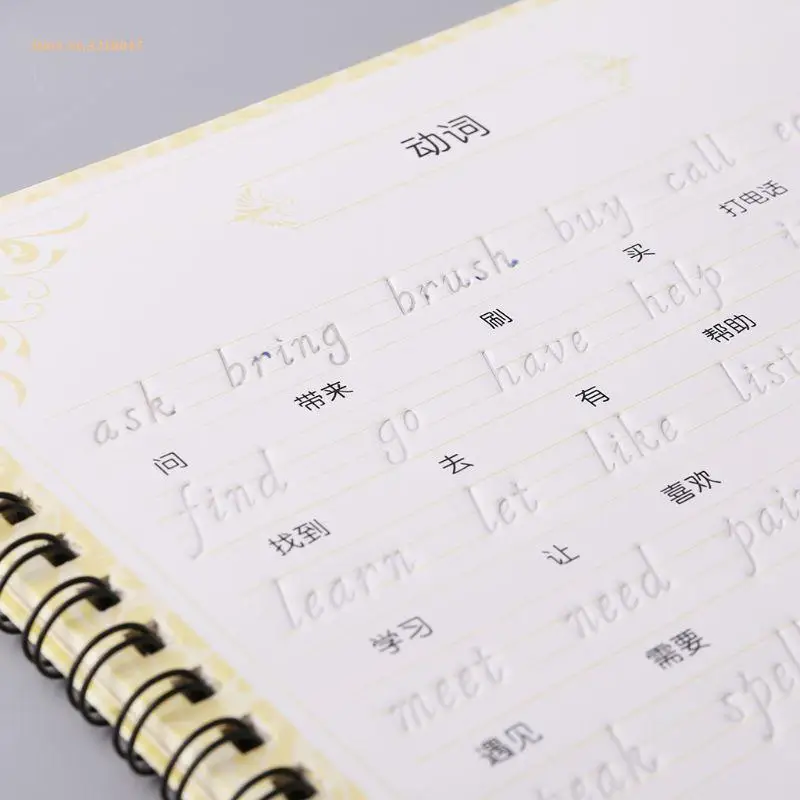 动词
ask bring brush buy call
问 带来 刷 买 打电话
find go have help
找到 去 有 帮助
learn let like
学习 让 喜欢
meet need
遇见 需要